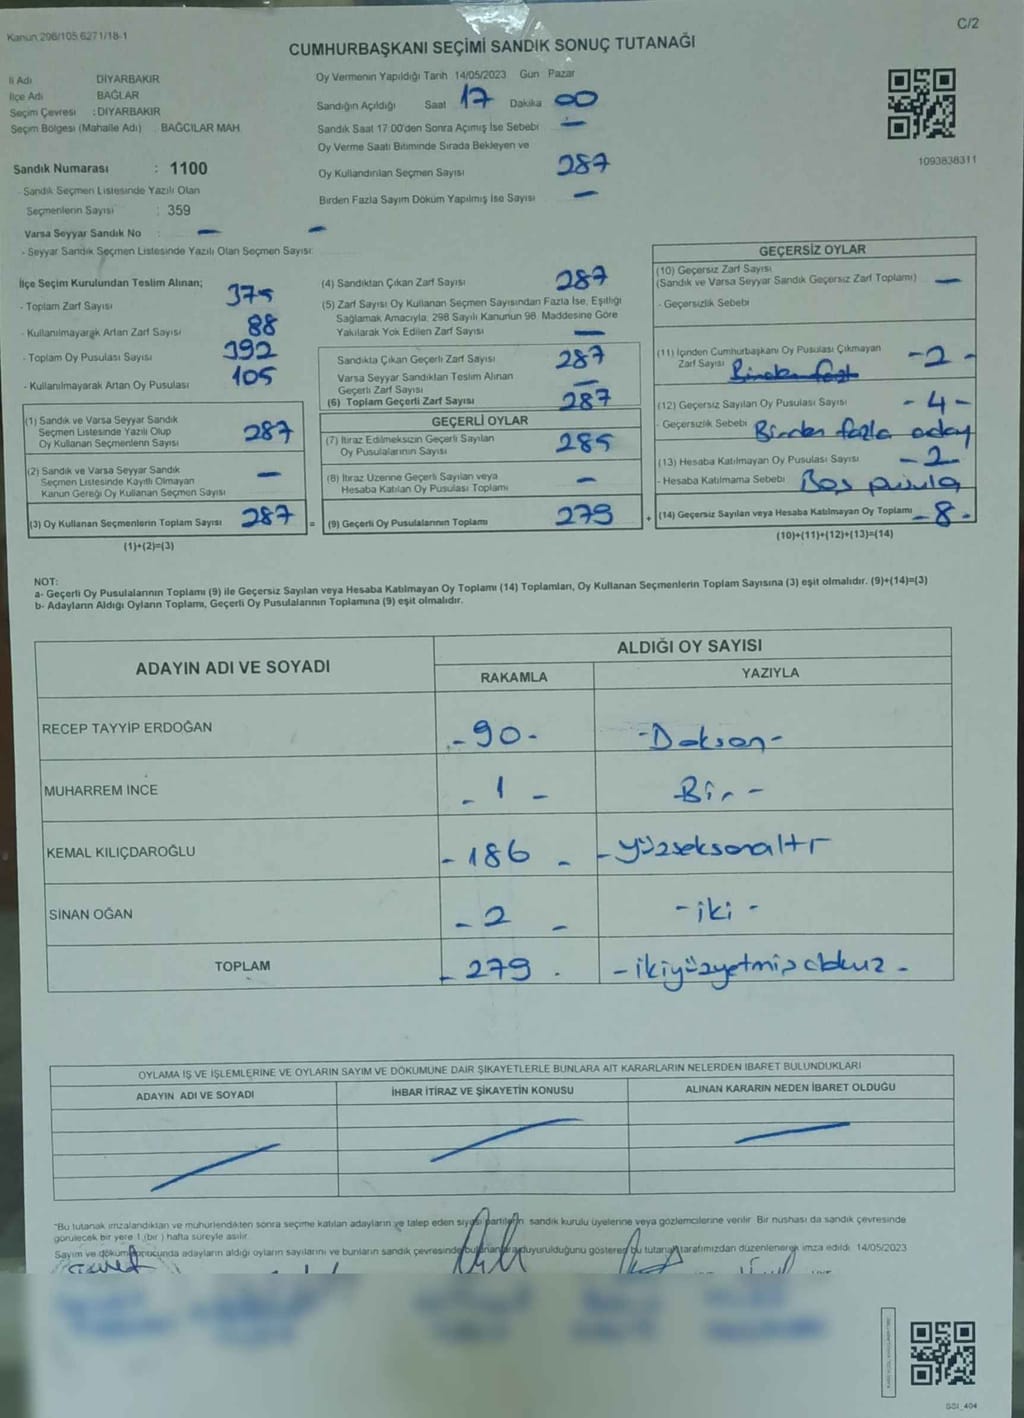 Kanun 298/105 6271/18-1
C/2
CUMHURBAŞKANI SEÇİMİ SANDIK SONUÇ TUTANAĞI
İl Adı DİYARBAKIR
İlçe Adı BAĞLAR
Seçim Çevresi : DİYARBAKIR
Seçim Bölgesi (Mahalle Adı) BAĞCILAR MAH.
Sandık Numarası : 1100
- Sandık Seçmen Listesinde Yazılı Olan
Seçmenlerin Sayısı : 359
Varsa Seyyar Sandık No –
- Seyyar Sandık Seçmen Listesinde Yazılı Olan Seçmen Sayısı: –
Oy Vermenin Yapıldığı Tarih 14/05/2023 Gün Pazar
Sandığın Açıldığı Saat 17 Dakika 00
Sandık Saat 17:00'den Sonra Açılmış İse Sebebi –
Oy Verme Saati Bitiminde Sırada Bekleyen ve
Oy Kullandırılan Seçmen Sayısı 287
Birden Fazla Sayım Döküm Yapılmış İse Sayısı –
1093838311
İlçe Seçim Kurulundan Teslim Alınan;
- Toplam Zarf Sayısı 375
- Kullanılmayarak Artan Zarf Sayısı 88
- Toplam Oy Pusulası Sayısı 392
- Kullanılmayarak Artan Oy Pusulası 105
(1) Sandık ve Varsa Seyyar Sandık
Seçmen Listesinde Yazılı Olup
Oy Kullanan Seçmenlerin Sayısı 287
(2) Sandık ve Varsa Seyyar Sandık
Seçmen Listesinde Kayıtlı Olmayan
Kanun Gereği Oy Kullanan Seçmen Sayısı –
(3) Oy Kullanan Seçmenlerin Toplam Sayısı 287 =
(1)+(2)=(3)
(4) Sandıktan Çıkan Zarf Sayısı 287
(5) Zarf Sayısı Oy Kullanan Seçmen Sayısından Fazla İse, Eşitliği
Sağlamak Amacıyla, 298 Sayılı Kanunun 98. Maddesine Göre
Yakılarak Yok Edilen Zarf Sayısı –
Sandıkta Çıkan Geçerli Zarf Sayısı 287
Varsa Seyyar Sandıktan Teslim Alınan
Geçerli Zarf Sayısı –
(6) Toplam Geçerli Zarf Sayısı 287
GEÇERLİ OYLAR
(7) İtiraz Edilmeksizin Geçerli Sayılan
Oy Pusulalarının Sayısı 285
(8) İtiraz Üzerine Geçerli Sayılan veya
Hesaba Katılan Oy Pusulası Toplamı –
(9) Geçerli Oy Pusulalarının Toplamı 279 +
GEÇERSİZ OYLAR
(10) Geçersiz Zarf Sayısı
(Sandık ve Varsa Seyyar Sandık Geçersiz Zarf Toplamı) –
- Geçersizlik Sebebi
(11) İçinden Cumhurbaşkanı Oy Pusulası Çıkmayan
Zarf Sayısı - 2 -
(12) Geçersiz Sayılan Oy Pusulası Sayısı - 4 -
- Geçersizlik Sebebi Birden fazla aday
(13) Hesaba Katılmayan Oy Pusulası Sayısı - 2
- Hesaba Katılmama Sebebi Boş pusula
(14) Geçersiz Sayılan veya Hesaba Katılmayan Oy Toplamı - 8 -
(10)+(11)+(12)+(13)=(14)
NOT:
a- Geçerli Oy Pusulalarının Toplamı (9) ile Geçersiz Sayılan veya Hesaba Katılmayan Oy Toplamı (14) Toplamları, Oy Kullanan Seçmenlerin Toplam Sayısına (3) eşit olmalıdır. (9)+(14)=(3)
b- Adayların Aldığı Oyların Toplamı, Geçerli Oy Pusulalarının Toplamına (9) eşit olmalıdır.
ADAYIN ADI VE SOYADI
ALDIĞI OY SAYISI
RAKAMLA YAZIYLA
RECEP TAYYİP ERDOĞAN - 90 - - Doksan -
MUHARREM İNCE - 1 - - Bir -
KEMAL KILIÇDAROĞLU - 186 - - yüzseksenaltı
SİNAN OĞAN - 2 - - iki -
TOPLAM - 279 - - ikiyüzyetmişdokuz -
OYLAMA İŞ VE İŞLEMLERİNE VE OYLARIN SAYIM VE DÖKÜMÜNE DAİR ŞİKAYETLERLE BUNLARA AİT KARARLARIN NELERDEN İBARET BULUNDUKLARI
ADAYIN ADI VE SOYADI İHBAR İTİRAZ VE ŞİKAYETİN KONUSU ALINAN KARARIN NEDEN İBARET OLDUĞU
*Bu tutanak imzalandıktan ve mühürlendikten sonra seçime katılan adayların ve talep eden siyasi partilerin sandık kurulu üyelerine veya gözlemcilerine verilir. Bir nüshası da sandık çevresinde
görülecek bir yere 1 (bir) hafta süreyle asılır.
Sayım ve döküm sonucunda adayların aldığı oyların sayılarını ve bunların sandık çevresinde duyurulduğunu gösteren bu tutanak tarafımızdan düzenlenerek imza edildi. 14/05/2023